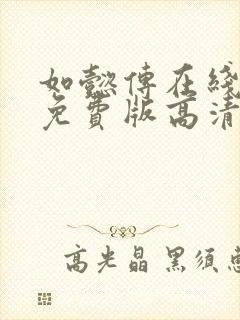 如懿傅在綫
免費版高清
高光晶黑须慈